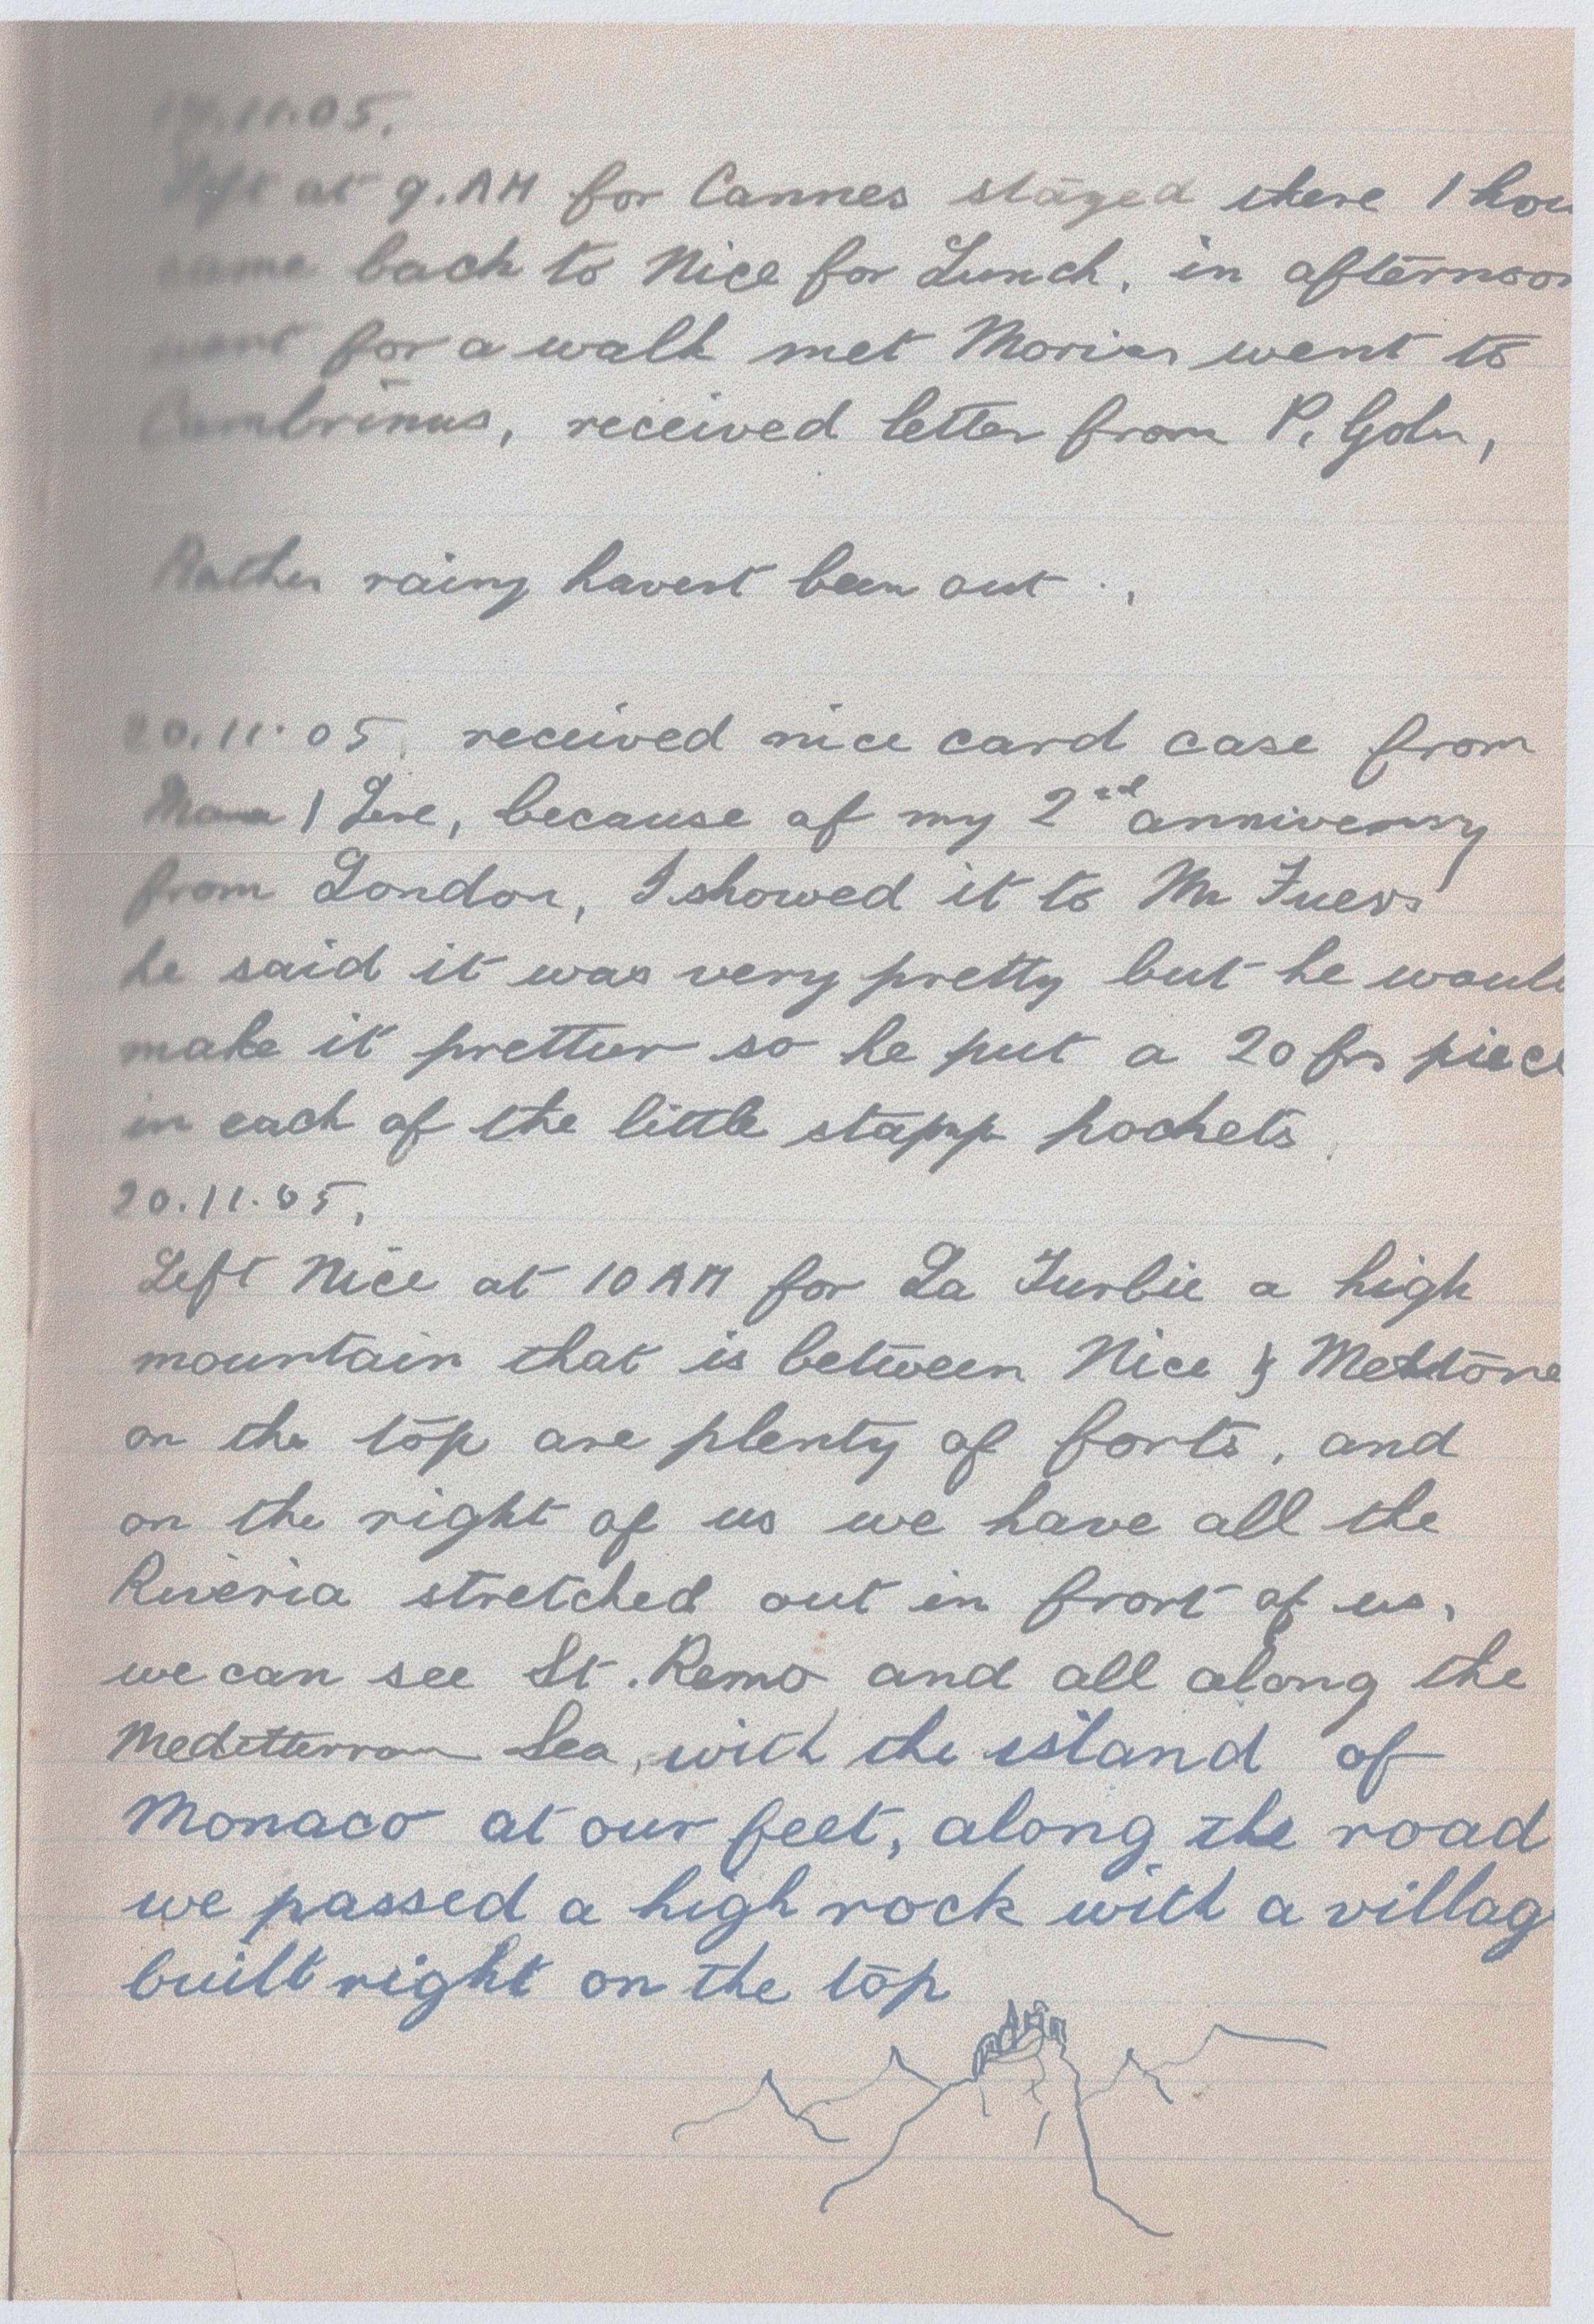 .11.05.
Left at 9.AM for Cannes stayed there 1 hou
came back to Nice for Lunch, in afternoon
went for a walk met went to
received letter from P.
Rather rainy havent been out .,
20.11.05. received nice card case from
because of my 2nd anniversary
from London, I showed it to Mr
he said it was very pretty but he would
make it prettier so he put a 20 frs piece
in each of the little pockets.
20.11.05,
Left Nice at 10 AM for La Turbie a high
mountain that is between Nice & Mentone
on the top are plenty of forts, and
on the right of us we have all the
Riveria stretched out in front of us,
we can see St. Remo and all along the
Sea, with the island of
Monaco at our feet, along the road
we passed a high rock with a villag
built right on the top